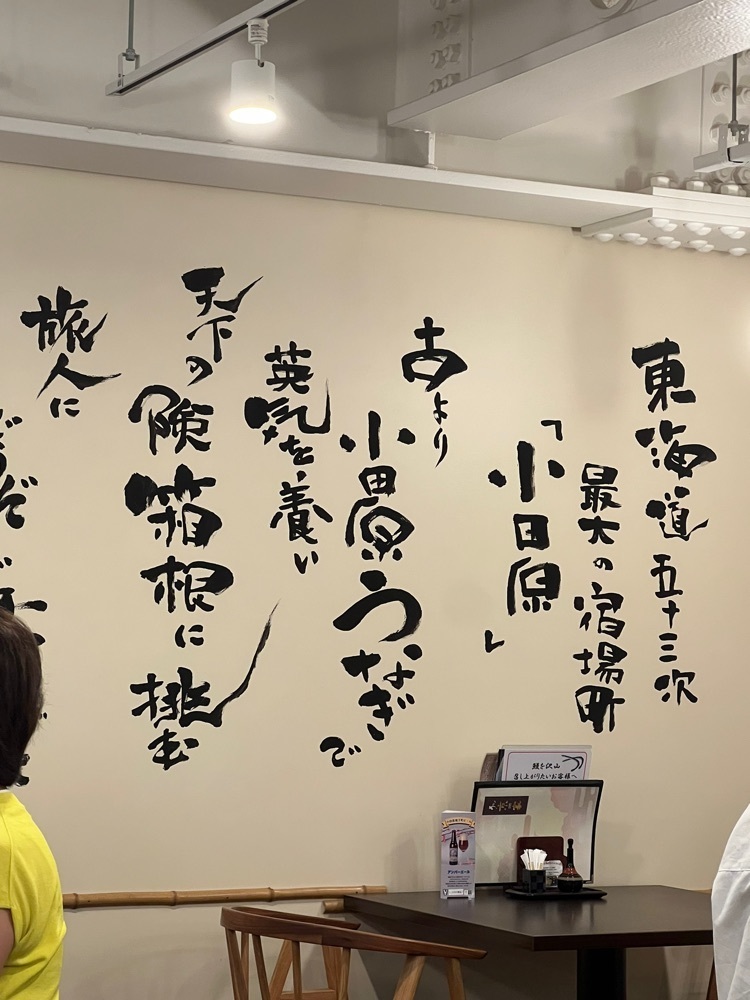 東海道五十三次
最大の宿場町
「小田原」
古より
小田原うなぎで
英気を養い
天下の険箱根に挑む
旅人に
鰻を沢山
召し上がりたいお客様へ